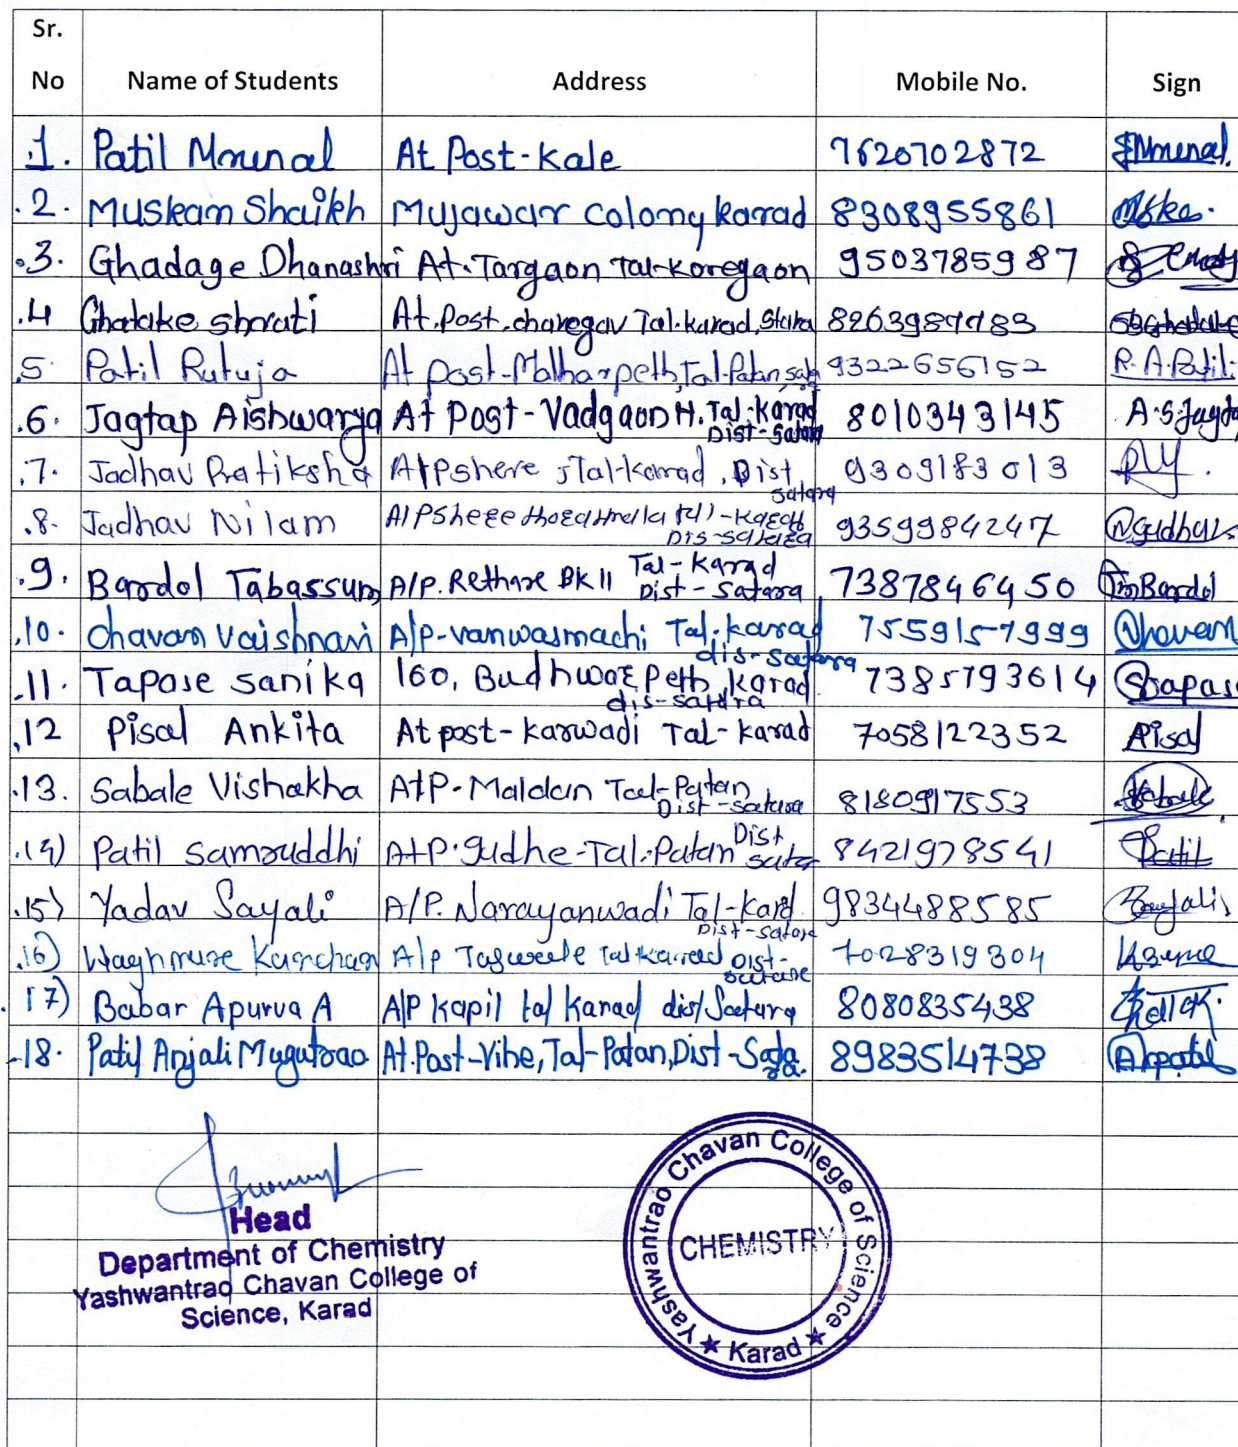 Sr. No Name of Students Address Mobile No. Sign
1. Patil Mrunal At Post-Kale 7620702872 Mrunal.
2. Muskan Shaikh Mujawar colony karad 8308955861
3. Ghadage Dhanashri At.Targaon Tal-Koregaon 9503785987
4 Ghatake shruti At.Post.charegav Tal.karad, 
5 Patil Rutuja At post-Malharpeth, Tal-Patan 9322656152 R.A.Patil.
6. Jagtap Aishwarya At Post-Vadgaon H. Tal-Karad 8010343145 A.S.Jagta
Dist-Satara
7. Jadhav Pratiksha A/P shere, Tal-karad, Dist 9309183013
satara
8. Jadhav Nilam A/P Shere 9359984247
9. Bardol Tabassum A/P. Rethare BK || Tal-Karad 7387846450 Bardol
Dist-Satara
10. Chavan Vaishnavi A/p-vanwasmachi Tal.karad 7559157999
dis-satara
11. Tapase sanika 160, Budhwar Peth karad 7385793614 Stapase
dis-satara
12 Pisal Ankita At post-Karwadi Tal-karad 7058122352 Pisal
13. Sabale Vishakha A/P-Maldan Tal-Patan 8180917553
Dist-satara
14) Patil Samruddhi A/P.Gudhe-Tal.Patan Dist 8421978541 Patil
15) Yadav Sayali A/P. Narayanwadi Tal-Karad 9834488585
Dist-satara
16) Waghmare Kanchan A/p Tal karad Dist- 7028319304
17) Babar Apurva A A/P kapil tal karad dist Satara 8080835438
18. Patil Anjali Mugutrao At.Post-Vihe, Tal-Patan, Dist-Sata 8983514738
ra.
Head
Department of Chemistry
Yashwantrao Chavan College of
Science, Karad
Yashwantrao Chavan College of Science
CHEMISTRY
★ Karad ★